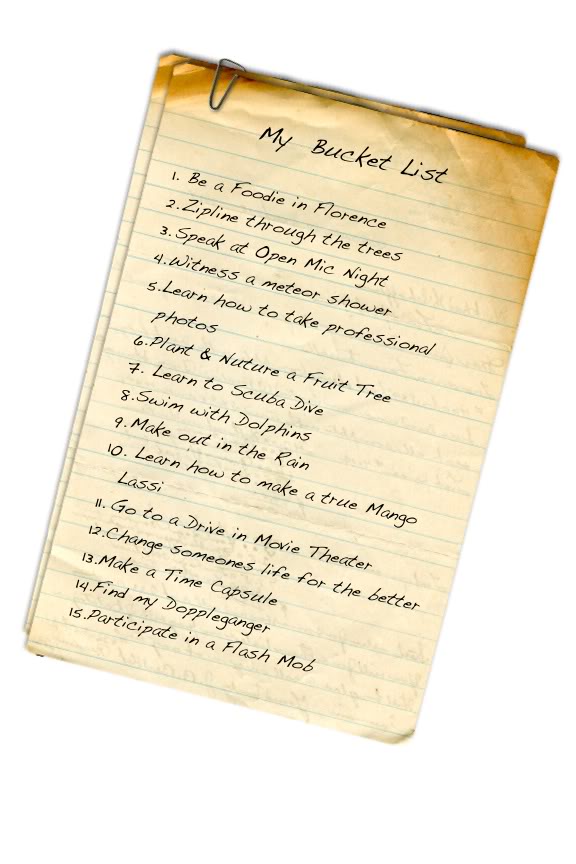 My Bucket List
1. Be a Foodie in Florence
2. Zipline through the trees
3. Speak at Open Mic Night
4. Witness a meteor shower
5. Learn how to take professional
photos
6. Plant & Nuture a Fruit Tree
7. Learn to Scuba Dive
8. Swim with Dolphins
9. Make out in the Rain
10. Learn how to make a true Mango
Lassi
11. Go to a Drive in Movie Theater
12. Change someones life for the better
13. Make a Time Capsule
14. Find my Doppleganger
15. Participate in a Flash Mob